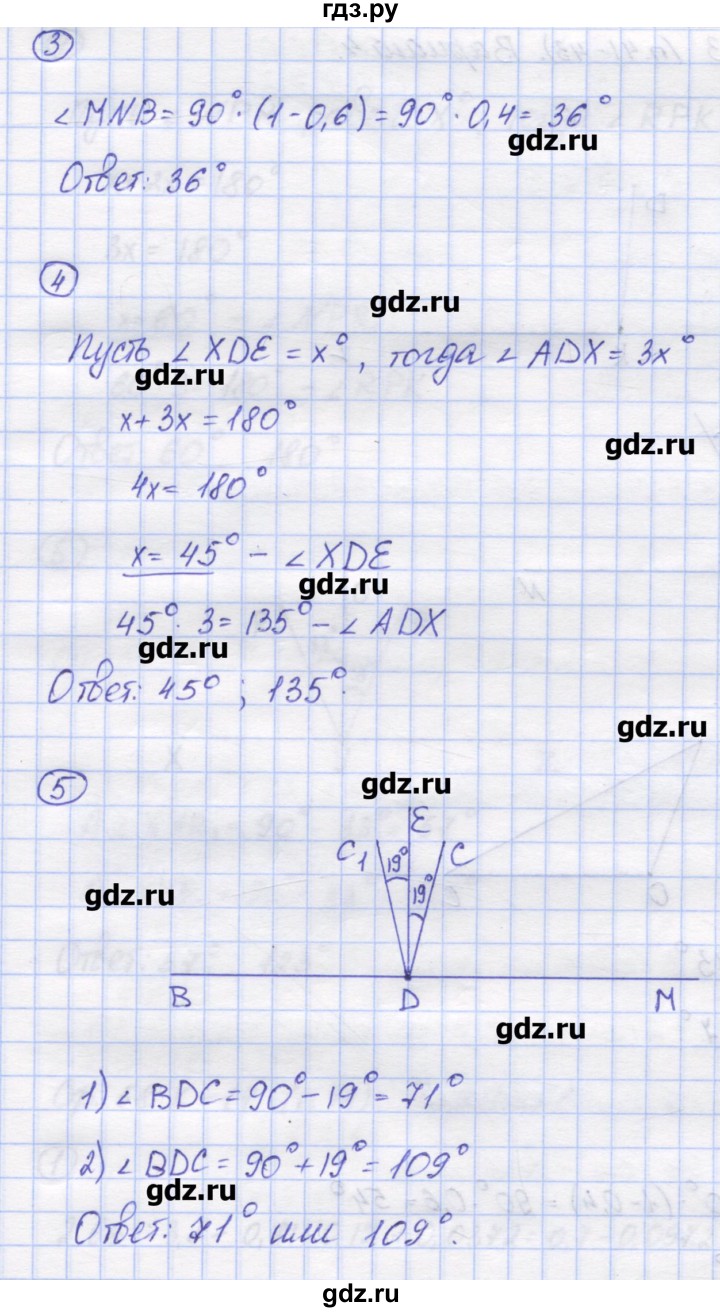 гдз.ру
3
∠MNB = 90°·(1-0,6) = 90°·0,4 = 36°
gdz.ru
Ответ: 36°
4
gdz.ru
Пусть ∠XDE = x°, тогда ∠ADX = 3x°
gdz.ru
x+3x = 180°
gdz.ru
4x = 180°
x = 45° - ∠XDE
gdz.ru
45°·3 = 135° - ∠ADX
gdz.ru
Ответ: 45°; 135°.
gdz.ru
5
gdz.ru
E
C₁ 19° C
19°
gdz.ru
B D M
gdz.ru
1) ∠BDC = 90° - 19° = 71°
2) ∠BDC = 90° + 19° = 109°
gdz.ru
Ответ: 71° или 109°.
gdz.ru